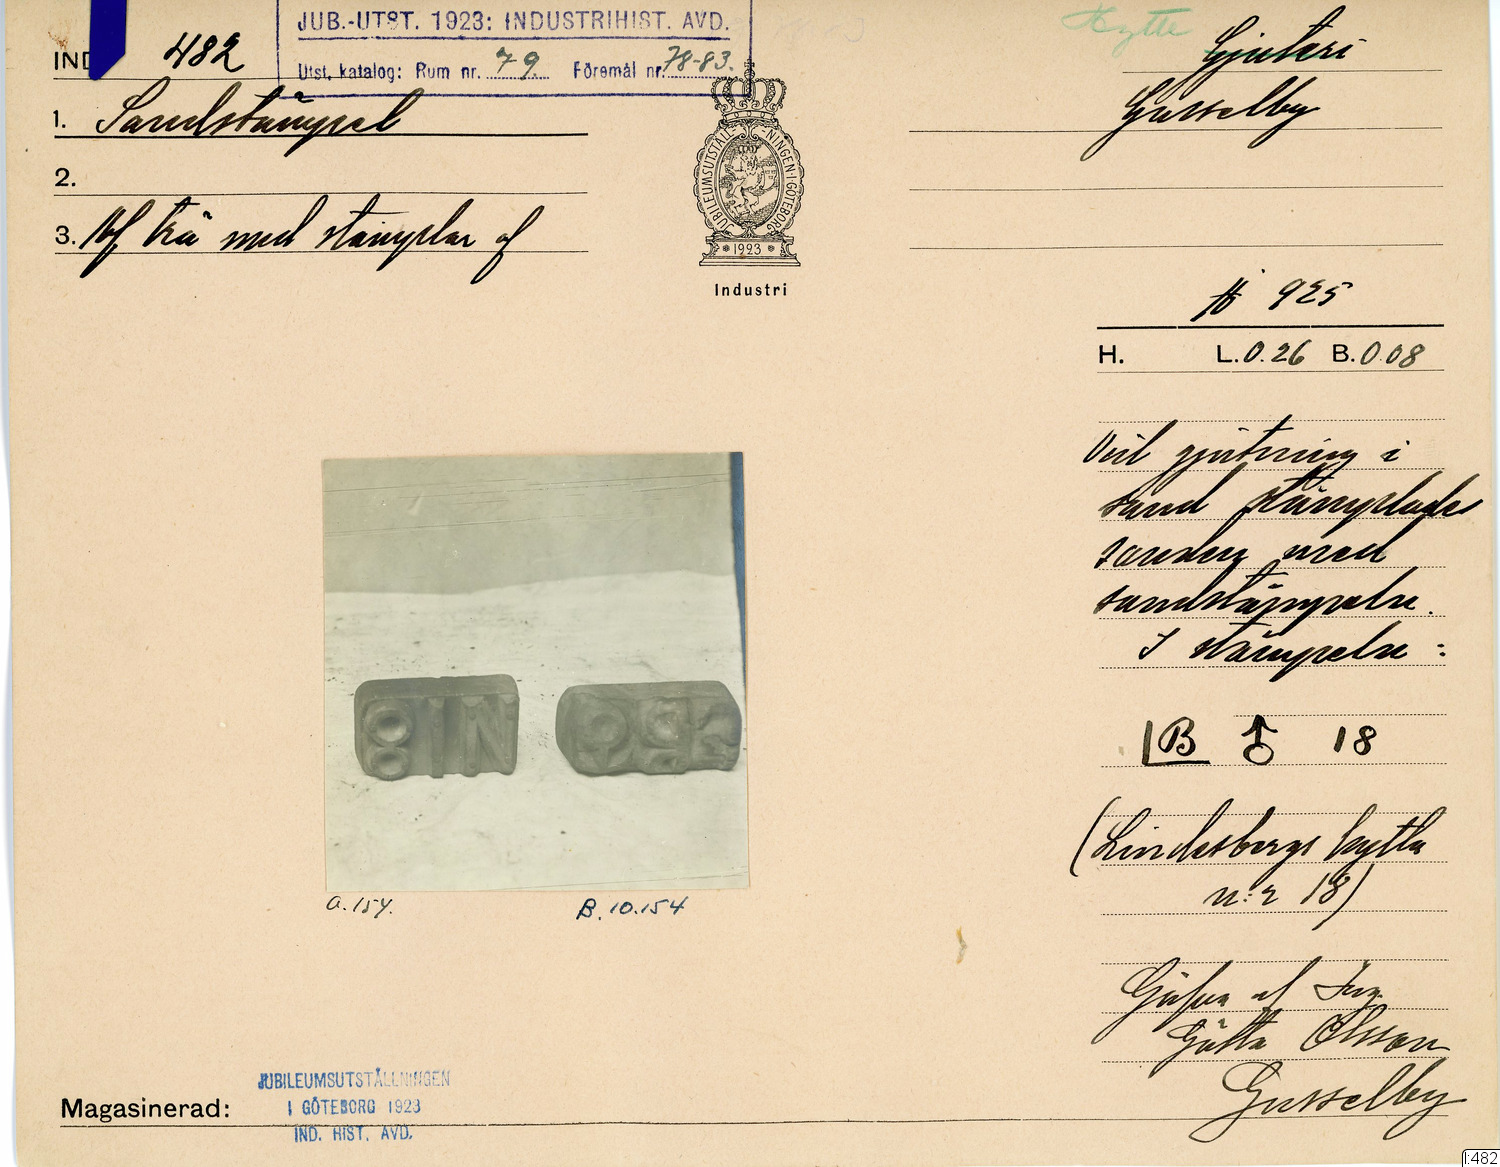 JUB.-UTST. 1923: INDUSTRIHIST. AVD.
Utst. katalog: Rum nr. 79 Föremål nr. 78-83.
IND 482
1. Sandstämpel
2.
3. Af trä med stämplar af
JUBILEUMSUTSTÄLLNINGEN I GÖTEBORG
* 1923 *
Industri
Hytte
Gjuteri
Gusselby
925
H. L. 0.26 B. 0.08
Vid gjutning i
sand stämplades
sanden med
sandstämpeln.
I stämpeln:
B ♂ 18
(Lindesbergs hytta
n:r 18)
Gåfva af Ing.
Gösta Olsson
Gusselby
IN
a.154.
B. 10.154
Magasinerad:
JUBILEUMSUTSTÄLLNINGEN
I GÖTEBORG 1923
IND. HIST. AVD.
I:482